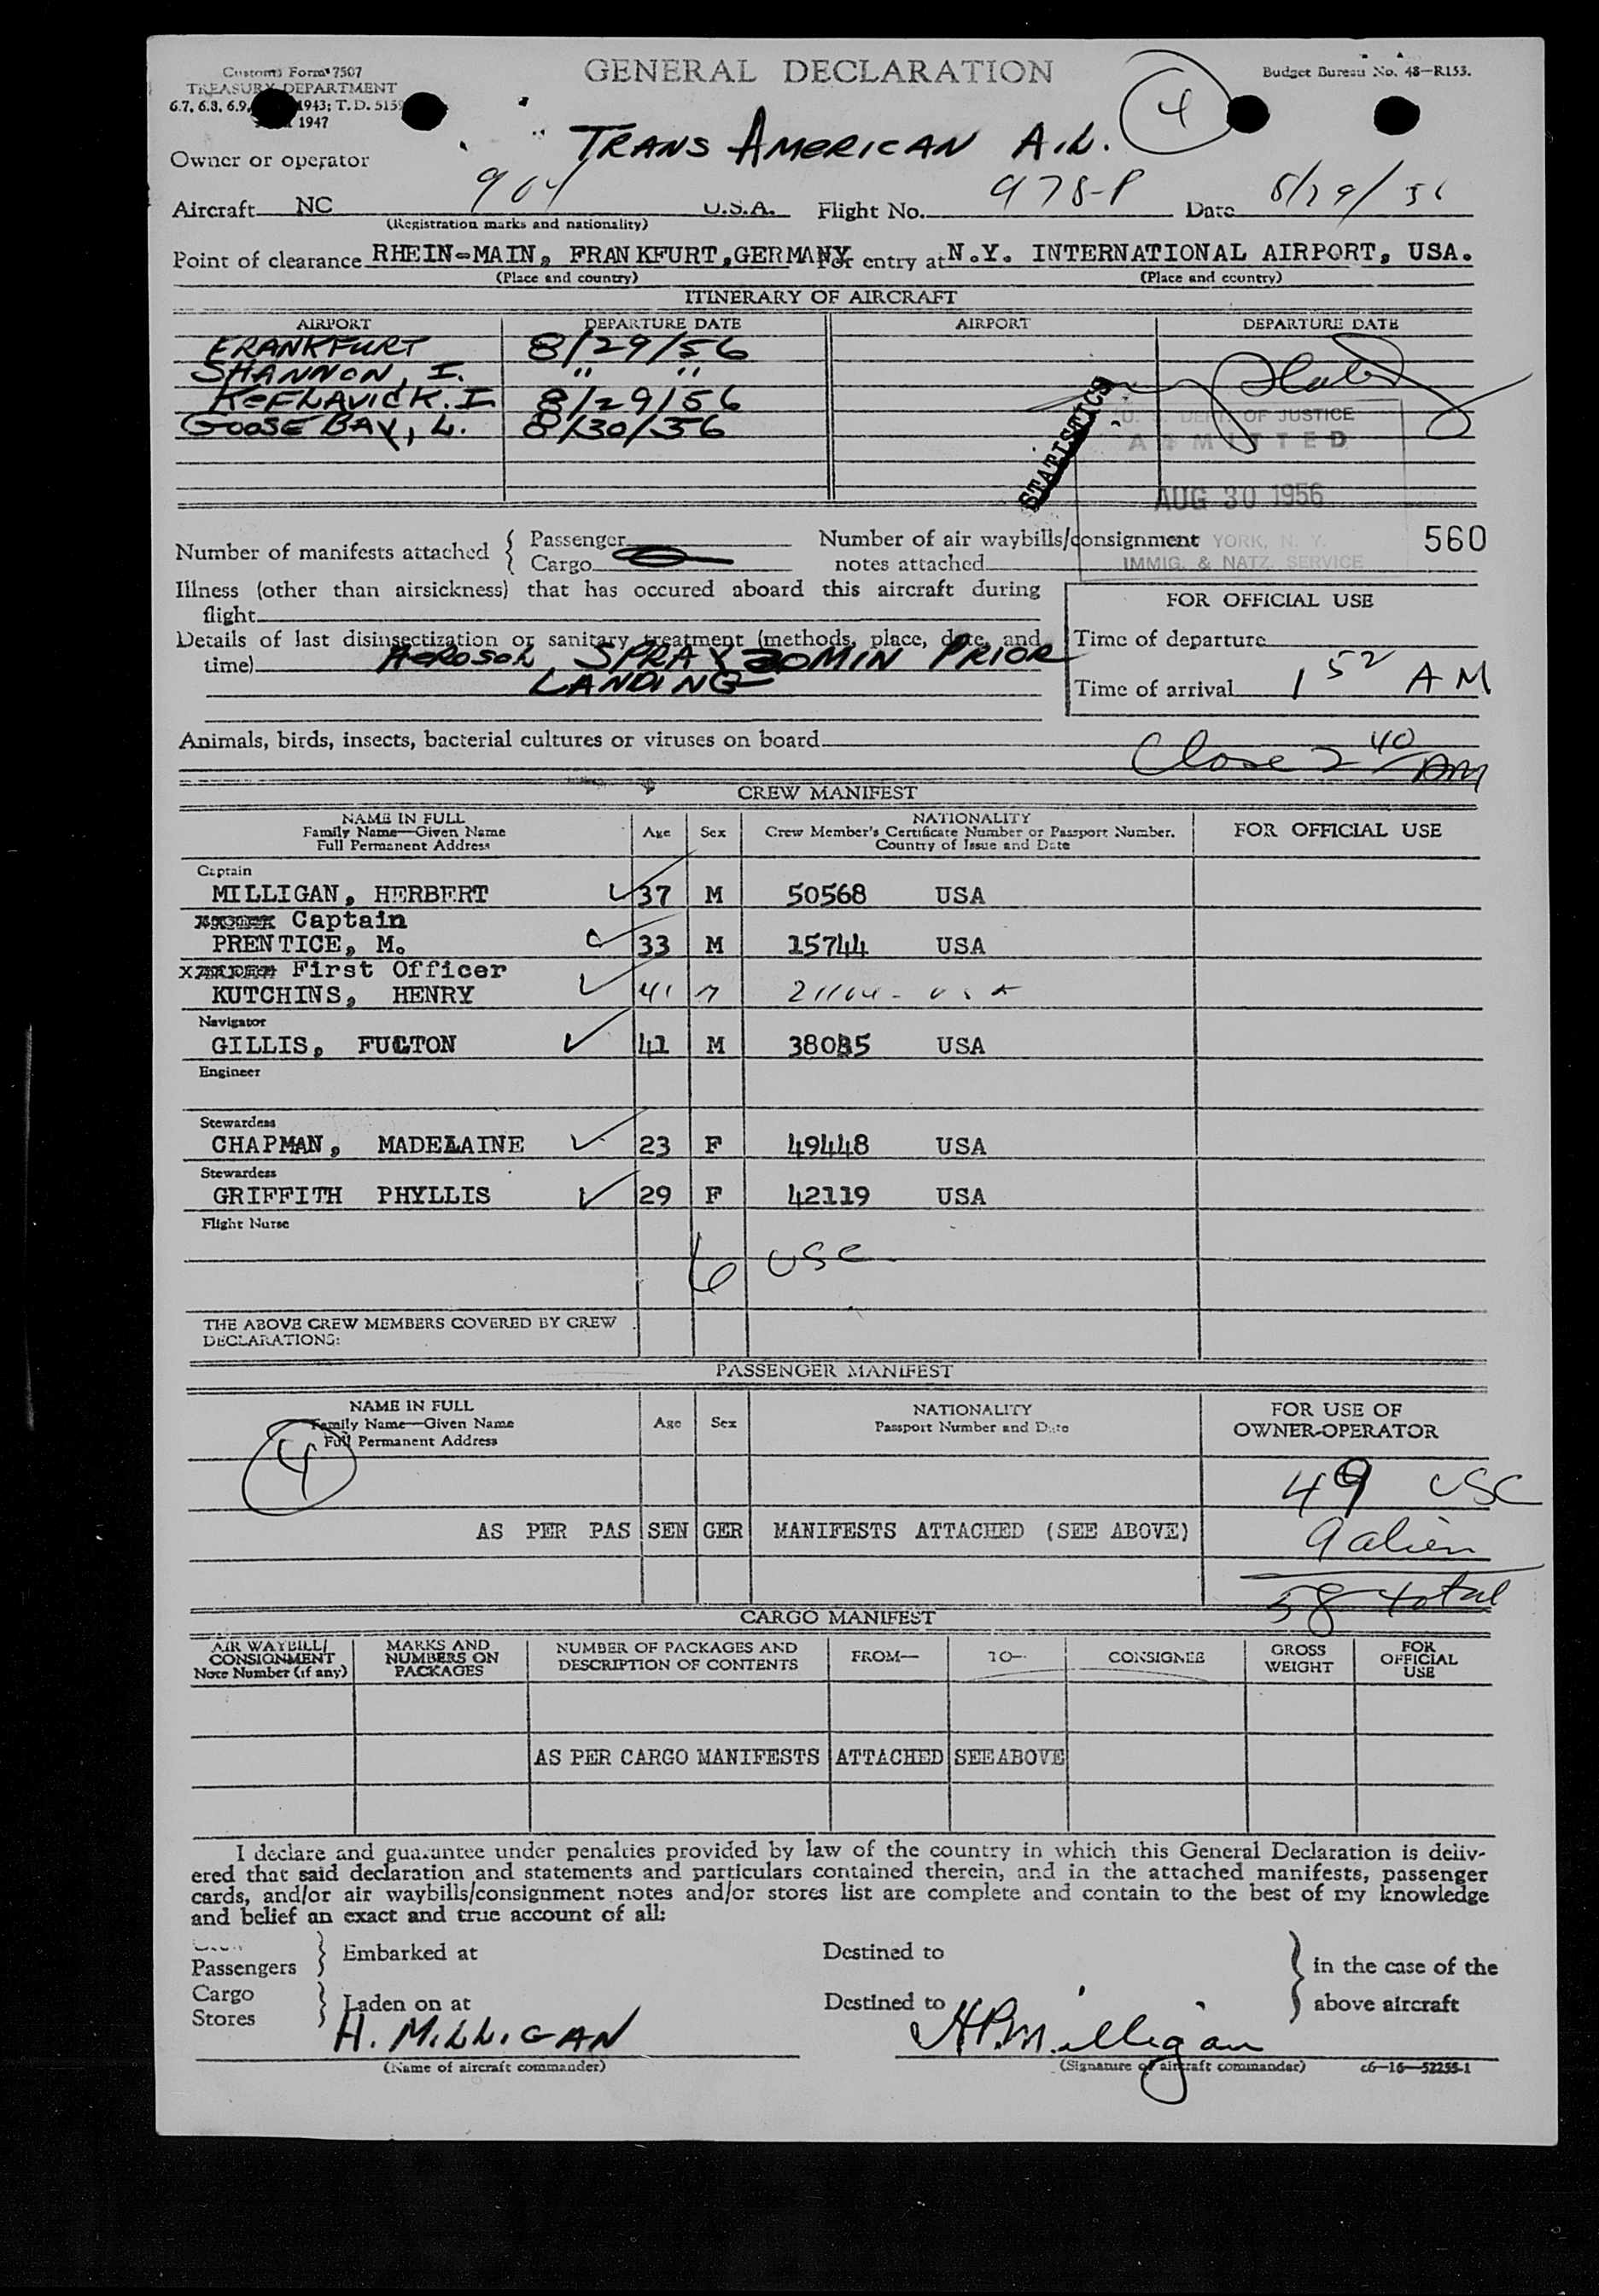 Customs Form 7507
TREASURY DEPARTMENT
6.7, 6.8, 6.9, 1943; T. D. 5155
1947
GENERAL DECLARATION
Budget Bureau No. 48—R153.
4
Owner or operator TRANS AMERICAN A.L.
Aircraft NC 904 U.S.A. Flight No. 978-P Date 8/29/56
(Registration marks and nationality)
Point of clearance RHEIN-MAIN, FRANKFURT, GERMANY For entry at N.Y. INTERNATIONAL AIRPORT, USA.
(Place and country) (Place and country)
ITINERARY OF AIRCRAFT
AIRPORT DEPARTURE DATE AIRPORT DEPARTURE DATE
FRANKFURT 8/29/56
SHANNON, I. " "
KEFLAVICK. I 8/29/56
GOOSE BAY, L. 8/30/56
STATISTICS
U. S. DEPT. OF JUSTICE
ADMITTED
AUG 30 1956
YORK, N. Y.
IMMIG. & NATZ. SERVICE
560
Number of manifests attached { Passenger
Cargo
Number of air waybills/consignment
notes attached
Illness (other than airsickness) that has occured aboard this aircraft during
flight
Details of last disinsectization or sanitary treatment (methods, place, date, and
time) AEROSOL SPRAY 30 MIN PRIOR
LANDING
FOR OFFICIAL USE
Time of departure
Time of arrival 1 52 AM
Animals, birds, insects, bacterial cultures or viruses on board
Close 2 40 AM
CREW MANIFEST
NAME IN FULL
Family Name—Given Name
Full Permanent Address
Age Sex
NATIONALITY
Crew Member's Certificate Number or Passport Number.
Country of Issue and Date
FOR OFFICIAL USE
Captain
MILLIGAN, HERBERT 37 M 50568 USA
Captain
PRENTICE, M. 33 M 15744 USA
First Officer
KUTCHINS, HENRY 41 M USA
Navigator
GILLIS, FULTON 41 M USA
Engineer
Stewardess
CHAPMAN, MADELAINE 23 F 49448 USA
Stewardess
GRIFFITH PHYLLIS 29 F 42119 USA
Flight Nurse
6 USC
THE ABOVE CREW MEMBERS COVERED BY CREW
DECLARATIONS:
PASSENGER MANIFEST
NAME IN FULL
Family Name—Given Name
Full Permanent Address
Age Sex
NATIONALITY
Passport Number and Date
FOR USE OF
OWNER-OPERATOR
4
49 USC
AS PER PAS SEN GER MANIFESTS ATTACHED (SEE ABOVE)
9 alien
58 total
CARGO MANIFEST
AIR WAYBILL/
CONSIGNMENT
Note Number (if any)
MARKS AND
NUMBERS ON
PACKAGES
NUMBER OF PACKAGES AND
DESCRIPTION OF CONTENTS
FROM— TO— CONSIGNEE
GROSS
WEIGHT
FOR
OFFICIAL
USE
AS PER CARGO MANIFESTS ATTACHED SEE ABOVE
I declare and guarantee under penalties provided by law of the country in which this General Declaration is deliv-
ered that said declaration and statements and particulars contained therein, and in the attached manifests, passenger
cards, and/or air waybills/consignment notes and/or stores list are complete and contain to the best of my knowledge
and belief an exact and true account of all:
Crew
Passengers } Embarked at Destined to } in the case of the
Cargo
Stores } Laden on at Destined to above aircraft
H. MILLIGAN H P Milligan
(Name of aircraft commander) (Signature of aircraft commander) c6—16—52255-1